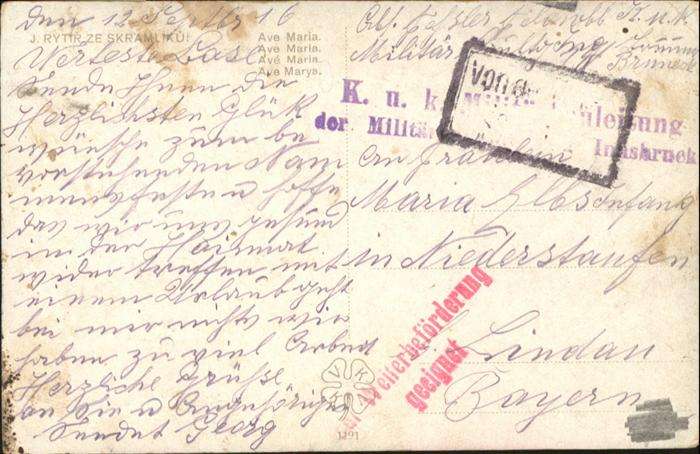 den 12 Septbr 16
J. RYTÍŘ ZE SKRAMLÍKŮ:
Ave Maria.
Ave Maria.
Ave Maria.
Ave Marya.
Werteste Basl
Sende Ihnen die
Herzlichsten Glük
wünsche zum be
vorstehenden Nam
mensfeste u hoffe
das wir uns gesund
in der Haimat
wider treffen mit
einem Urlaub geht
bei mir nichts wir
haben zu viel Arbeit
Herzliche Grüße
an Sie u Angehörige
Sendet Georg
K. u. k.
Militär
K. u. k. Militär leitung
der Militär Innsbruck
an Fräulein
Maria
in Niederstaufen
Lindau
Bayern
Weiterbeförderung
geeignet
1191